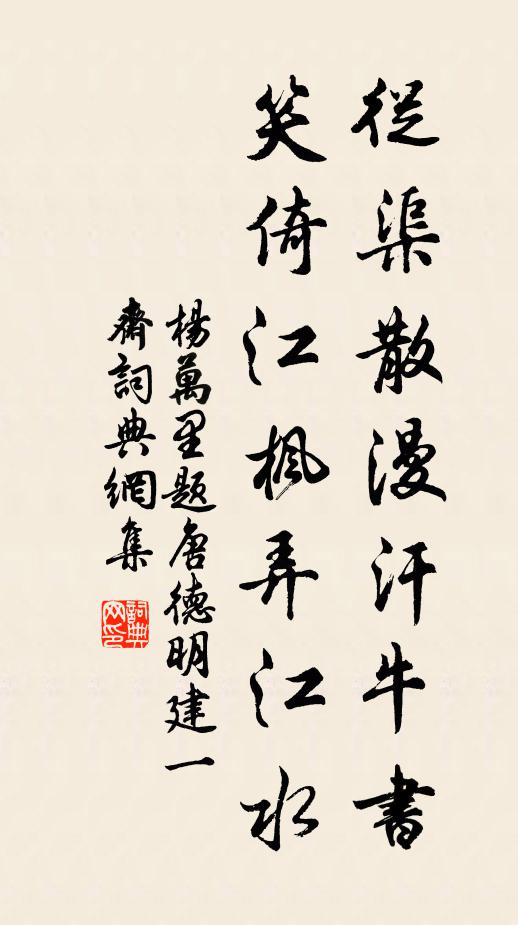 從渠散漫汗牛書
笑倚江楓弄江水
楊萬里題唐德明建一
齋詞典網集
詞典
网印